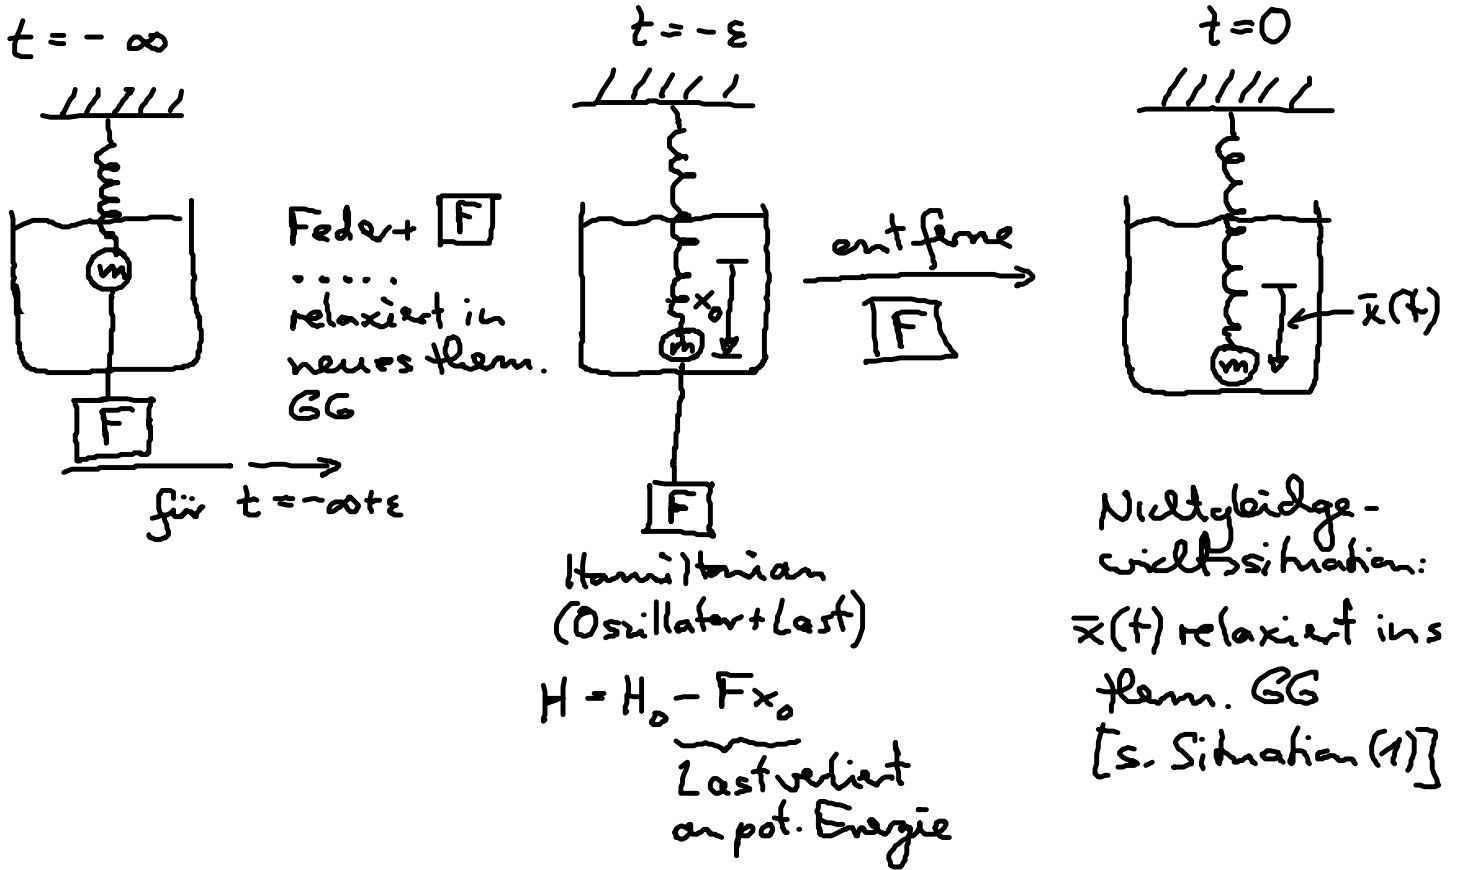 t = - ∞
t = - ε
t = 0
m
F
für t = -∞ + ε
Feder + F
.....
relaxiert in
neues therm.
GG
x₀
m
F
Hamiltonian
(Oszillator + Last)
H = H₀ - Fx₀
Last verliert
an pot. Energie
entferne
F
x̄(t)
m
Nichtgleichge-
wichtssituation:
x̄(t) relaxiert ins
therm. GG
[s. Situation (1)]